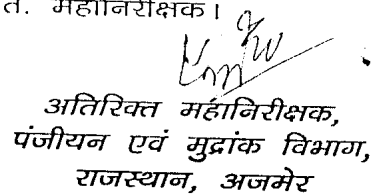 त. महानिरीक्षक।
अतिरिक्त महानिरीक्षक,
पंजीयन एवं मुद्रांक विभाग,
राजस्थान, अजमेर